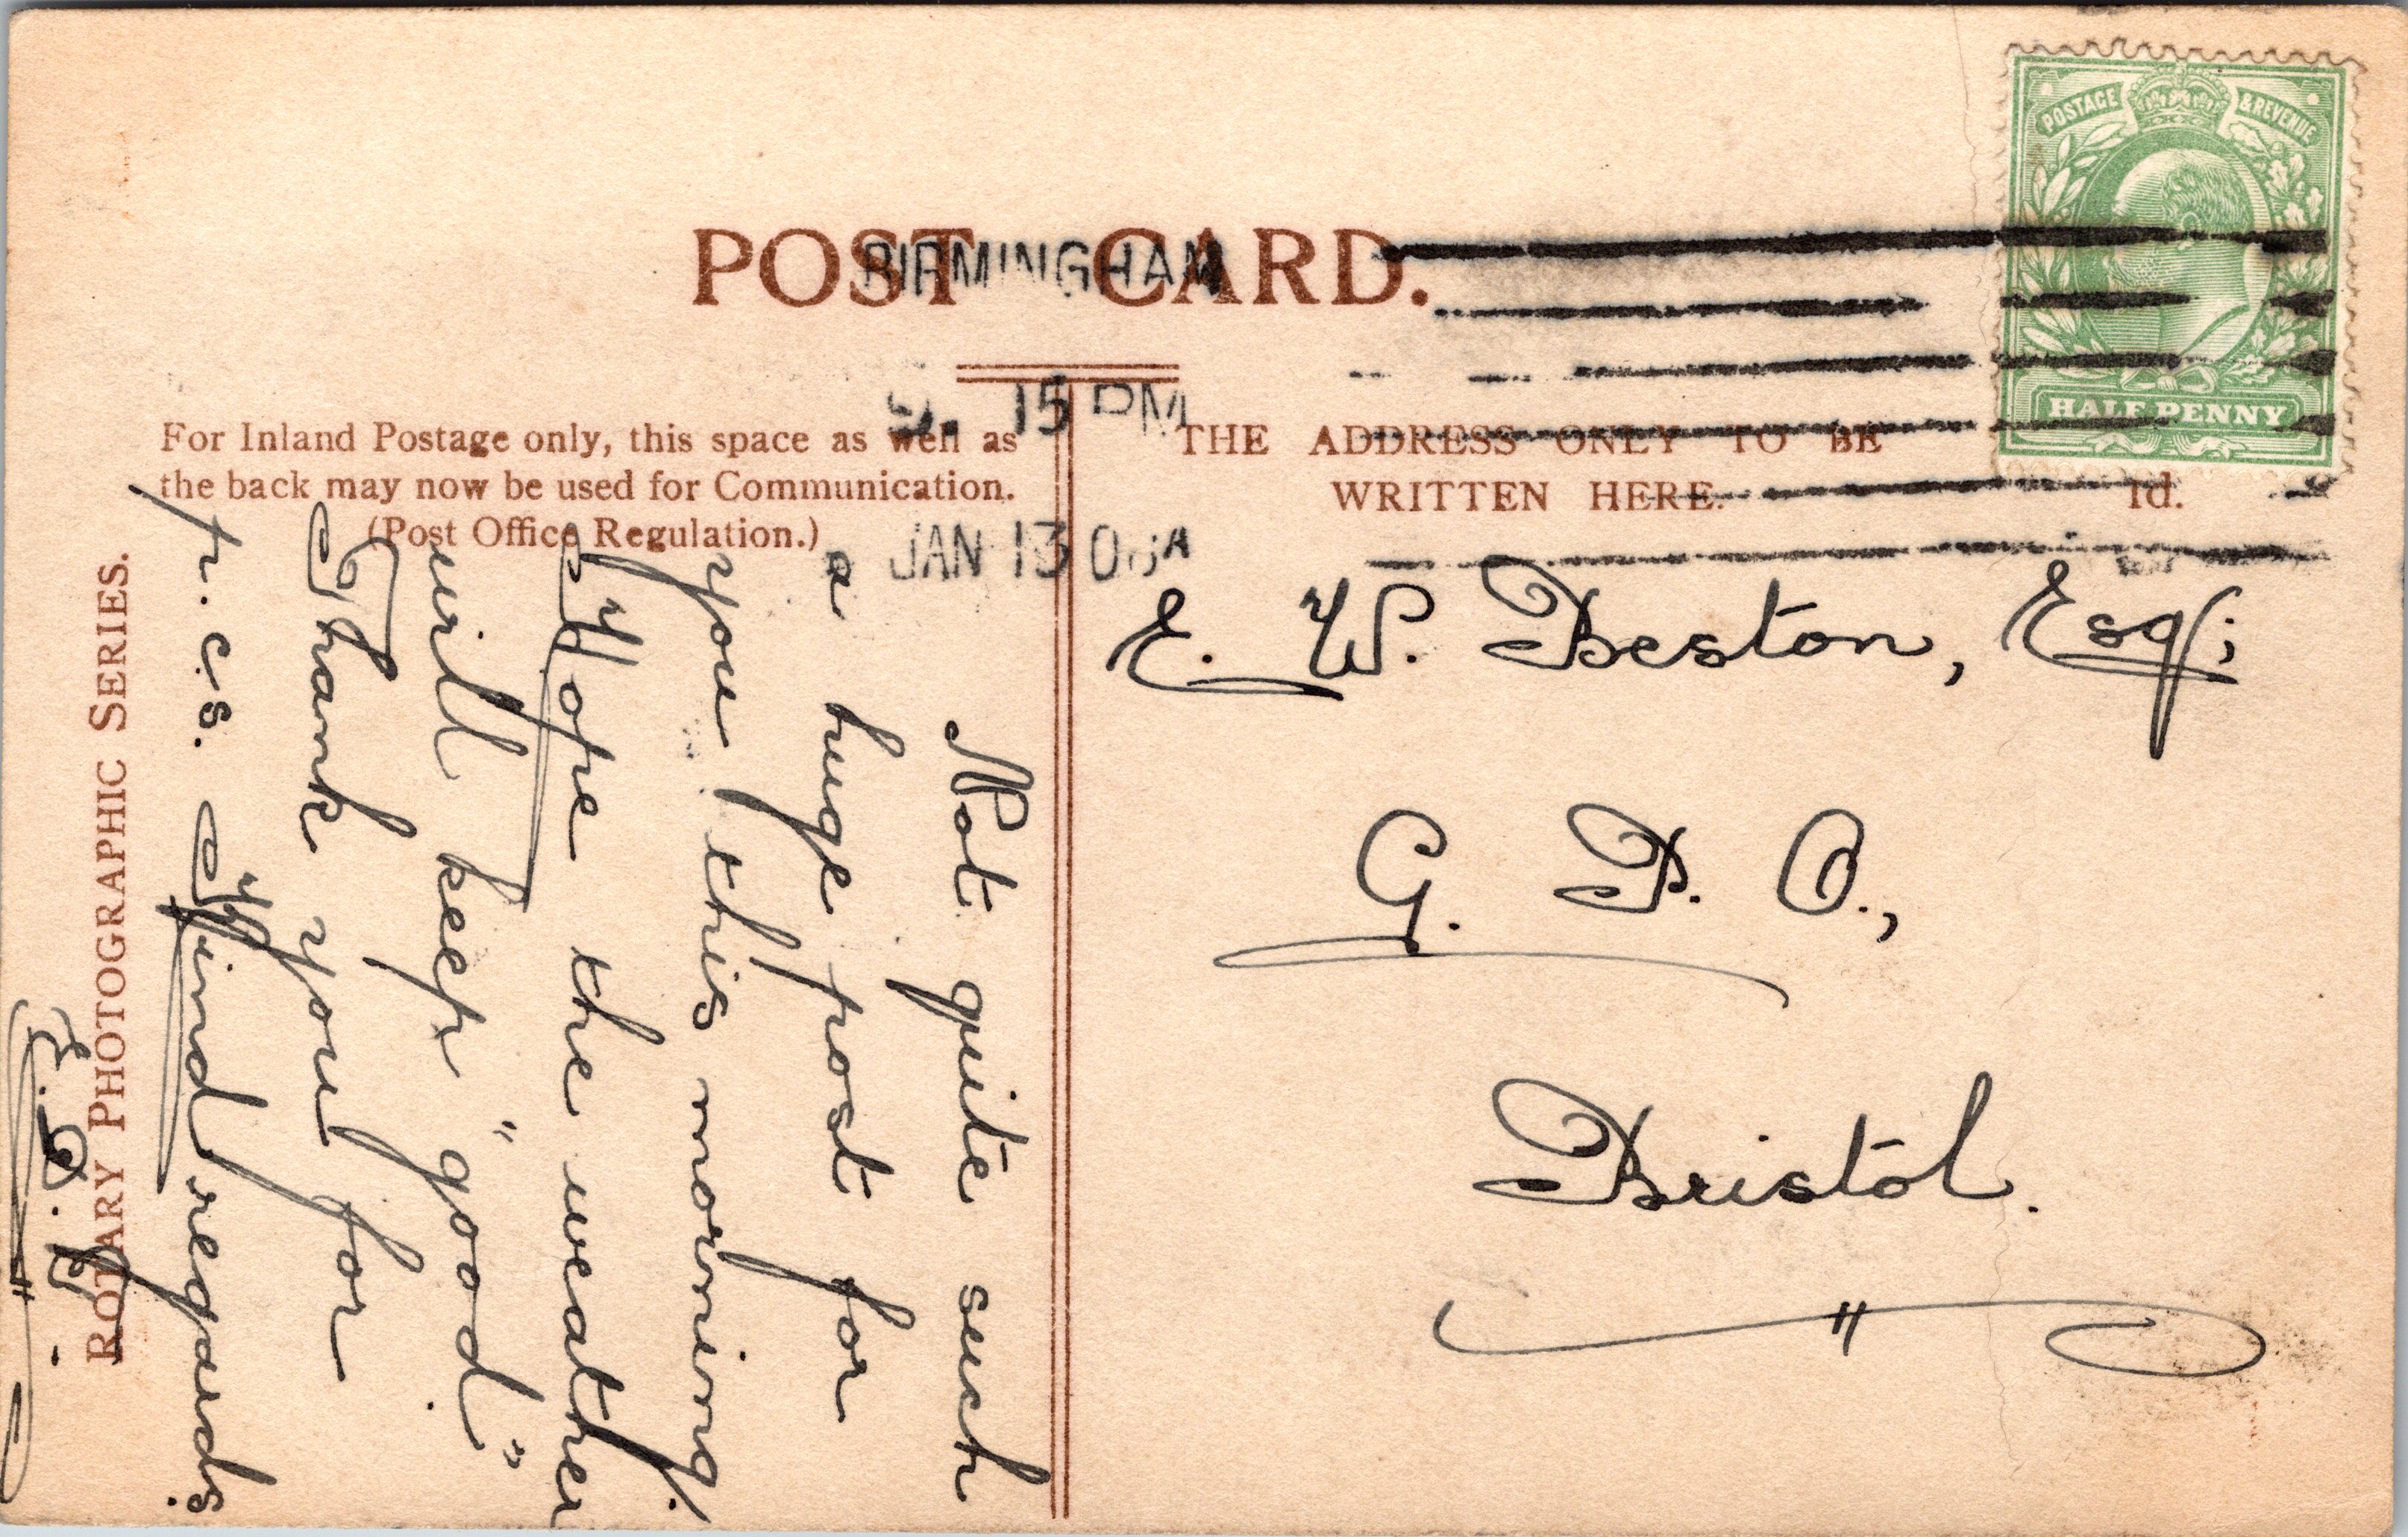 POST CARD.
BIRMINGHAM
15 PM
JAN 13
POSTAGE & REVENUE
HALF PENNY
For Inland Postage only, this space as well as
the back may now be used for Communication.
(Post Office Regulation.)
THE ADDRESS ONLY TO BE
WRITTEN HERE.
1d.
ROTARY PHOTOGRAPHIC SERIES.
Not quite such
a huge post for
you this morning.
Hope the weather
will keep "good".
Thank you for
p.cs. Kind regards.
E. W. Beston, Esq;
G. P. O.,
Bristol.